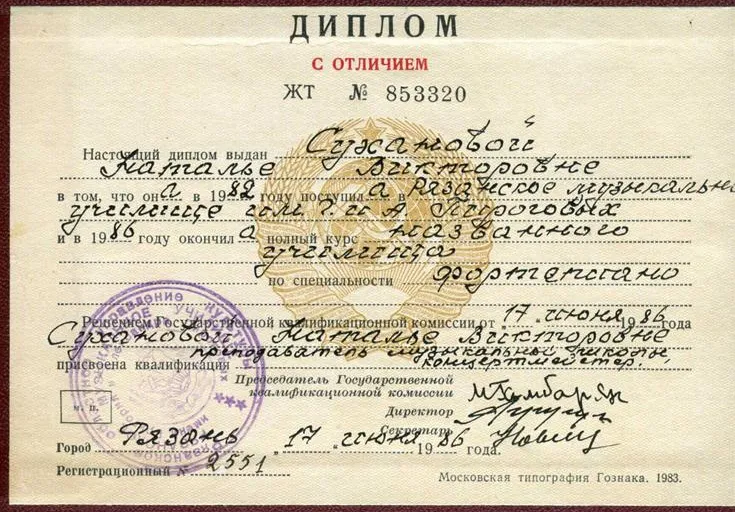 ДИПЛОМ
С ОТЛИЧИЕМ
ЖТ № 853320
Настоящий диплом выдан Сухановой
Наталье Викторовне
в том, что она в 1982 году поступила в Рязанское музыкальное
училище им. Г. и А. Пироговых
и в 1986 году окончила полный курс названного
училища
по специальности фортепиано
Решением Государственной квалификационной комиссии от 17 июня 1986 года
Сухановой Наталье Викторовне
преподаватель музыкальной школы,
присвоена квалификация концертмейстер.
Председатель Государственной
квалификационной комиссии
Директор
м. п.
Секретарь
Город Рязань 17 июня 1986 года.
Регистрационный № 2551
Московская типография Гознака. 1983.